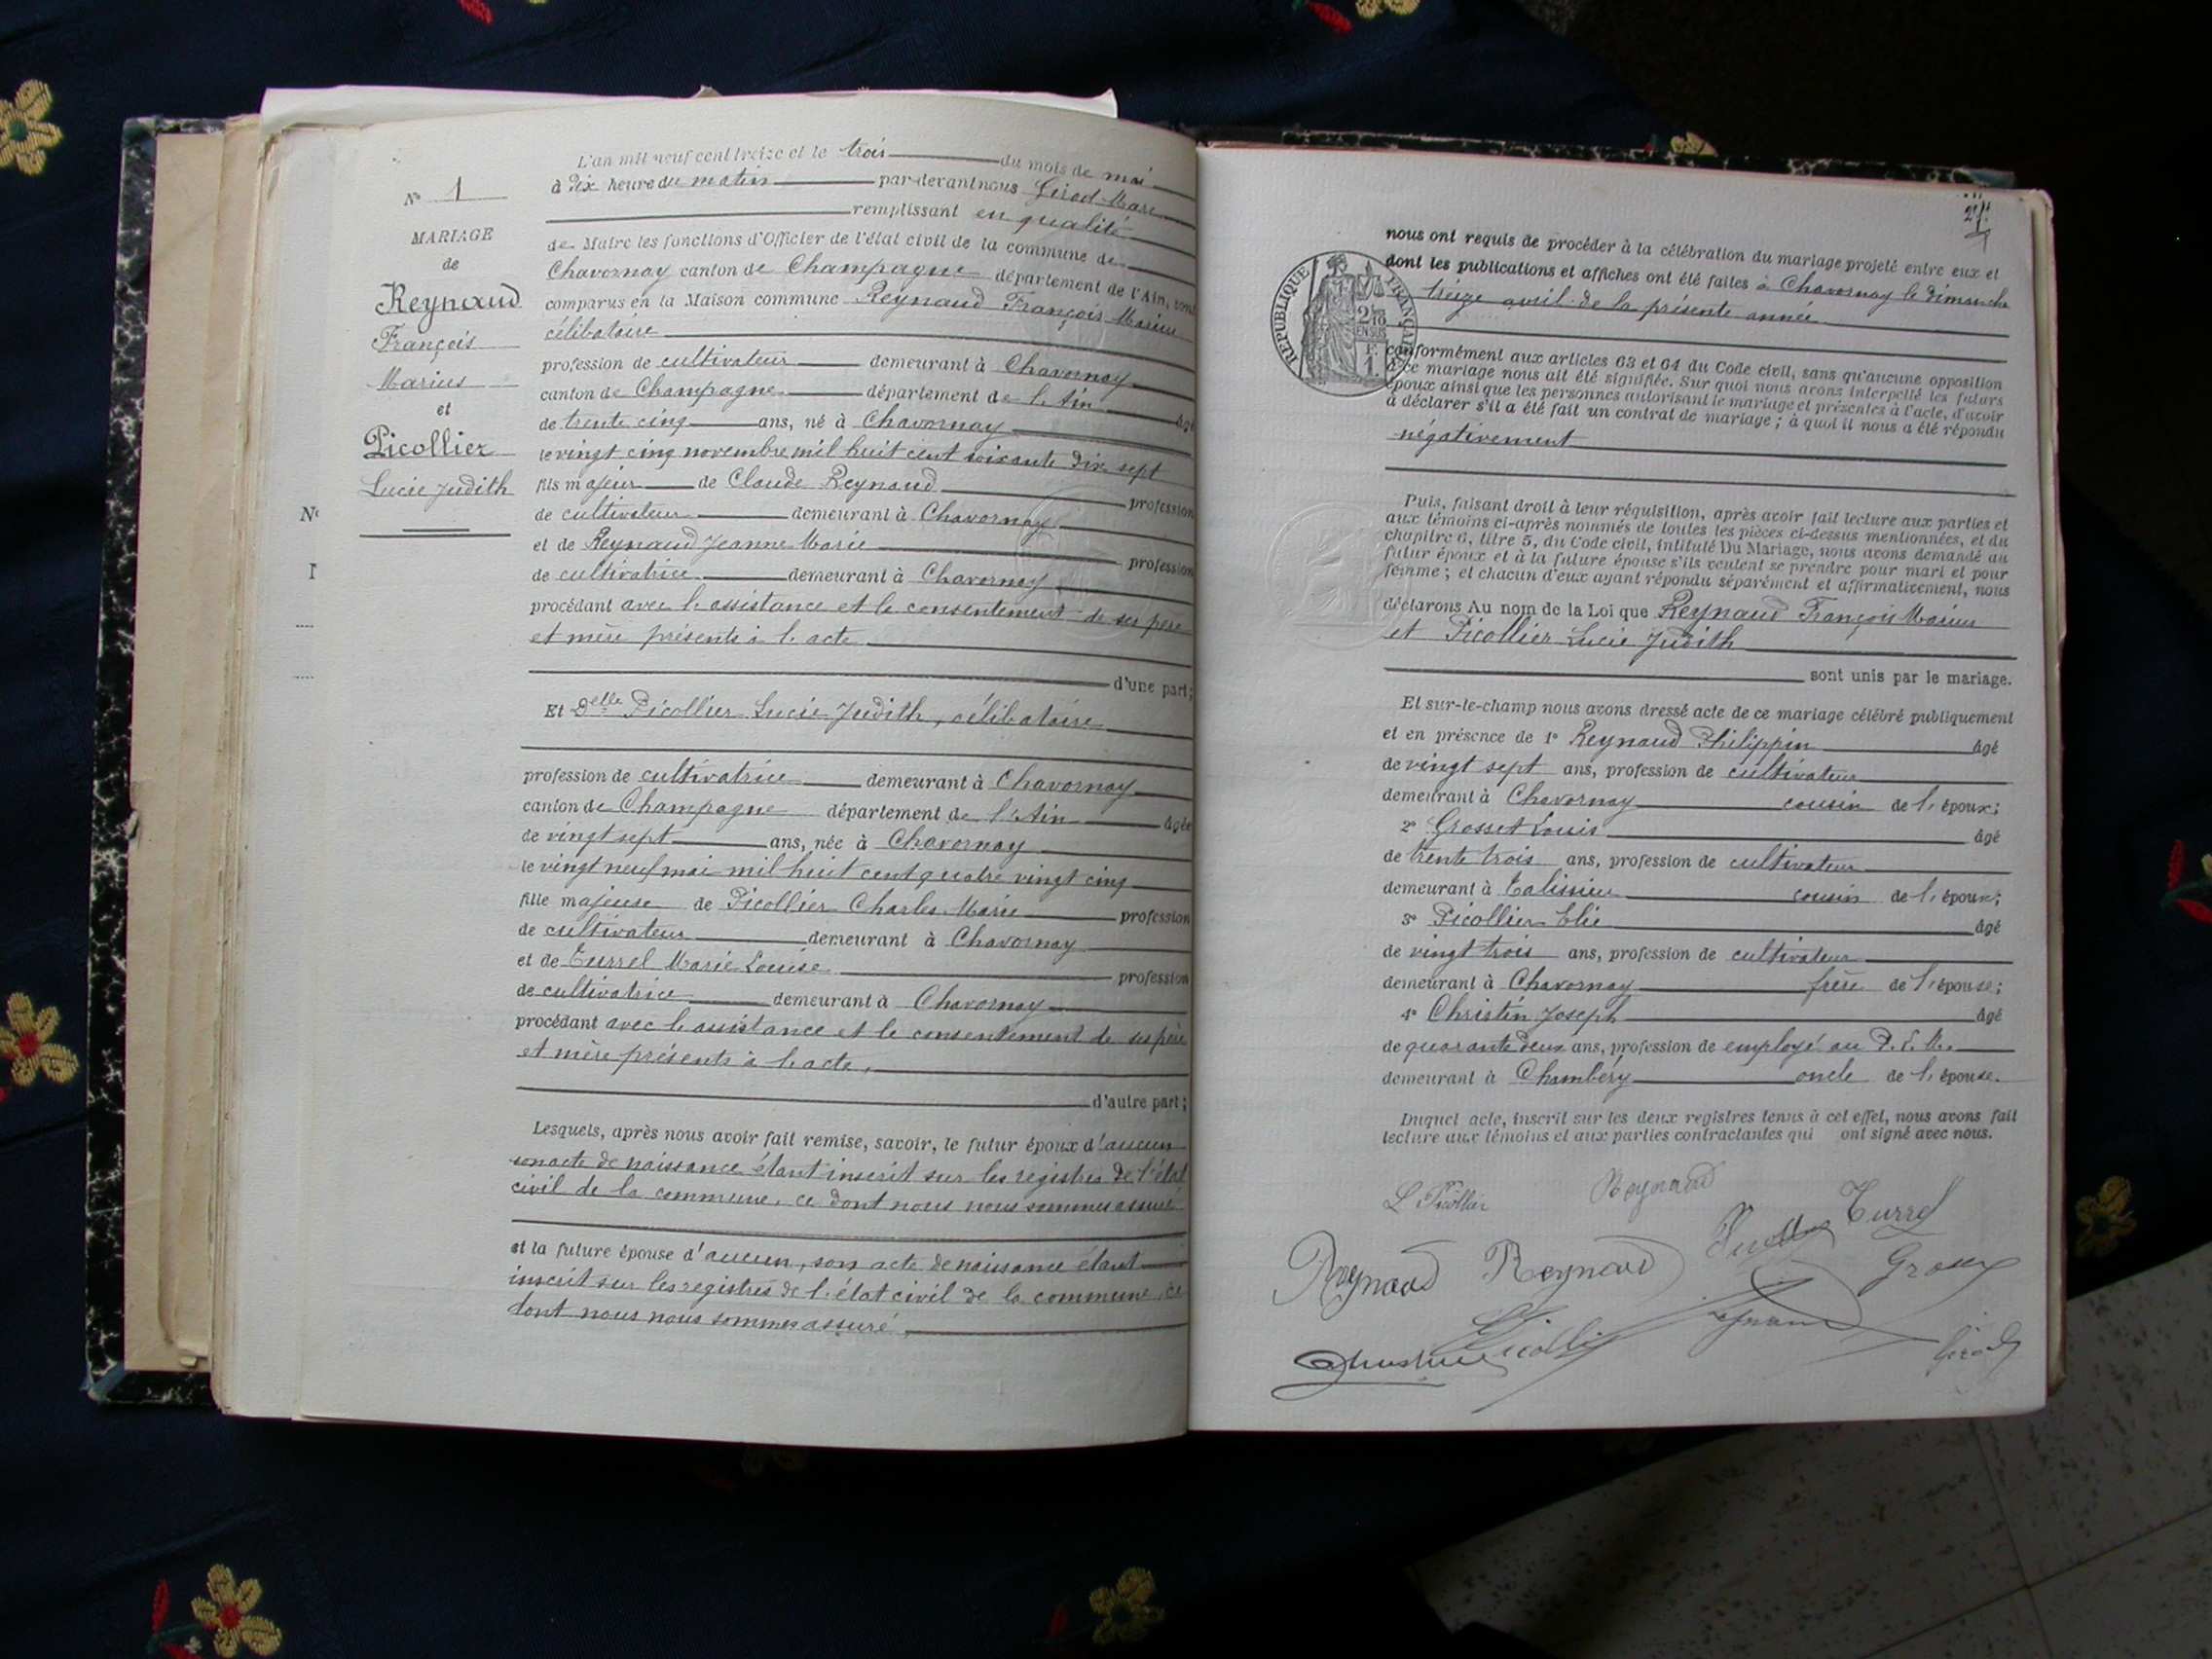 N° 1
MARIAGE
de
Reynaud
François
Marius
et
Picollier
Lucie Judith
L'an mil neuf cent treize et le trois du mois de mai
à dix heure du matin par-devant nous Girod Marc
remplissant en qualité
de Maire les fonctions d'Officier de l'état civil de la commune de
Chavornay canton de Champagne département de l'Ain, sont
comparus en la Maison commune Reynaud François Marius
célibataire
profession de cultivateur demeurant à Chavornay
canton de Champagne département de l'Ain âgé
de trente cinq ans, né à Chavornay
le vingt cinq novembre mil huit cent soixante dix sept
fils majeur de Claude Reynaud profession
de cultivateur demeurant à Chavornay
et de Reynaud Jeanne Marie profession
de cultivatrice demeurant à Chavornay
procédant avec l'assistance et le consentement de ses père
et mère présents à l'acte
d'une part;
Et Delle Picollier Lucie Judith, célibataire
profession de cultivatrice demeurant à Chavornay
canton de Champagne département de l'Ain âgée
de vingt sept ans, née à Chavornay
le vingt neuf mai mil huit cent quatre vingt cinq
fille majeure de Picollier Charles Marie profession
de cultivateur demeurant à Chavornay
et de Turrel Marie Louise profession
de cultivatrice demeurant à Chavornay
procédant avec l'assistance et le consentement de ses père
et mère présents à l'acte,
d'autre part;
Lesquels, après nous avoir fait remise, savoir, le futur époux d'aucun
son acte de naissance étant inscrit sur les registres de l'état
civil de la commune, ce dont nous nous sommes assuré
et la future épouse d'aucun, son acte de naissance étant
inscrit sur les registres de l'état civil de la commune, ce
dont nous nous sommes assuré
nous ont requis de procéder à la célébration du mariage projeté entre eux et
dont les publications et affiches ont été faites à Chavornay le dimanche
treize avril de la présente année
RÉPUBLIQUE FRANÇAISE
2/10
EN SUS
F.
1.
conformément aux articles 63 et 64 du Code civil, sans qu'aucune opposition
à ce mariage nous ait été signifiée. Sur quoi nous avons interpellé les futurs
époux ainsi que les personnes autorisant le mariage et présentes à l'acte, d'avoir
à déclarer s'il a été fait un contrat de mariage; à quoi il nous a été répondu
négativement
Puis, faisant droit à leur réquisition, après avoir fait lecture aux parties et
aux témoins ci-après nommés de toutes les pièces ci-dessus mentionnées, et du
chapitre 6, titre 5, du Code civil, intitulé Du Mariage, nous avons demandé au
futur époux et à la future épouse s'ils veulent se prendre pour mari et pour
femme; et chacun d'eux ayant répondu séparément et affirmativement, nous
déclarons Au nom de la Loi que Reynaud François Marius
et Picollier Lucie Judith
sont unis par le mariage.
Et sur-le-champ nous avons dressé acte de ce mariage célébré publiquement
et en présence de 1° Reynaud Philippin âgé
de vingt sept ans, profession de cultivateur
demeurant à Chavornay cousin de l'époux;
2° Grosset Louis âgé
de trente trois ans, profession de cultivateur
demeurant à Talissieu cousin de l'époux;
3° Picollier Elie âgé
de vingt trois ans, profession de cultivateur
demeurant à Chavornay frère de l'épouse;
4° Christin Joseph âgé
de quarante deux ans, profession de employé au P.L.M.
demeurant à Chambéry oncle de l'épouse.
Duquel acte, inscrit sur les deux registres tenus à cet effet, nous avons fait
lecture aux témoins et aux parties contractantes qui ont signé avec nous.
L Picollier Reynaud
Turrel
Reynaud Reynaud
Picollier
Girod